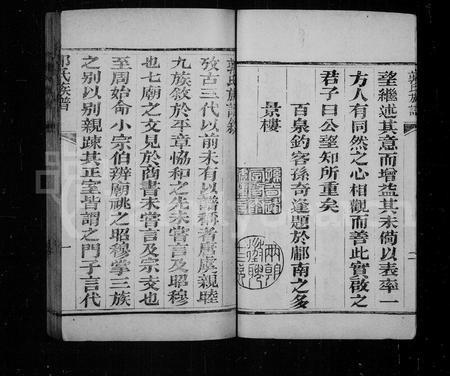 望繼述其意而增益其未備以表率一
方人有同然之心相觀而善此實啟之
君子曰公望知所重矣
百泉釣客孫奇逢題於鄘南之多
景樓
郭氏族譜
攷古三代以前未有以譜稱者唐虞親睦
九族敘於平章協和之先未嘗言及昭穆
也七廟之文見於商書未嘗言及宗支也
至周始侖小宗伯辨廟祧之昭穆掌三族
之別以別親疎其正室皆謂之門子言代
郭氏族譜
一